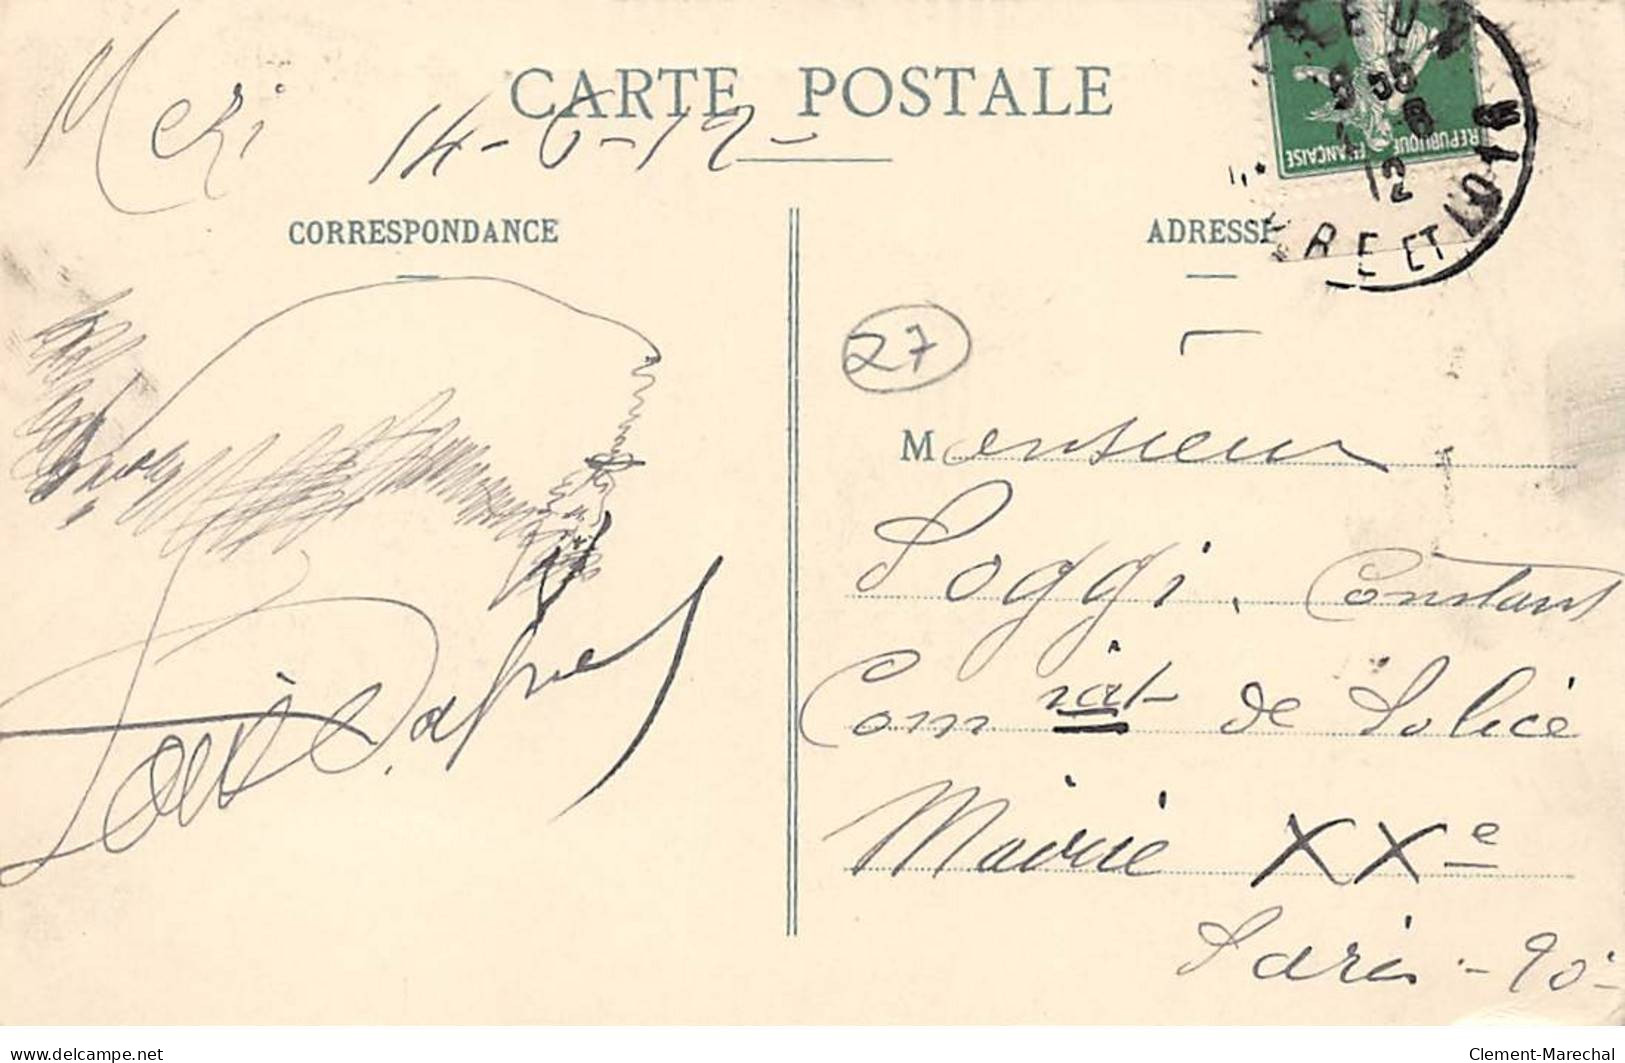 Meri
CARTE POSTALE
14-6-12-
CORRESPONDANCE
ADRESSE
REPUBLIQUE FRANÇAISE
12
RE ET LOIR
27
Monsieur
Poggi, Constant
Com riat de Police
Mairie XXe
Paris - 20 -
www.delcampe.net
Clement-Marechal